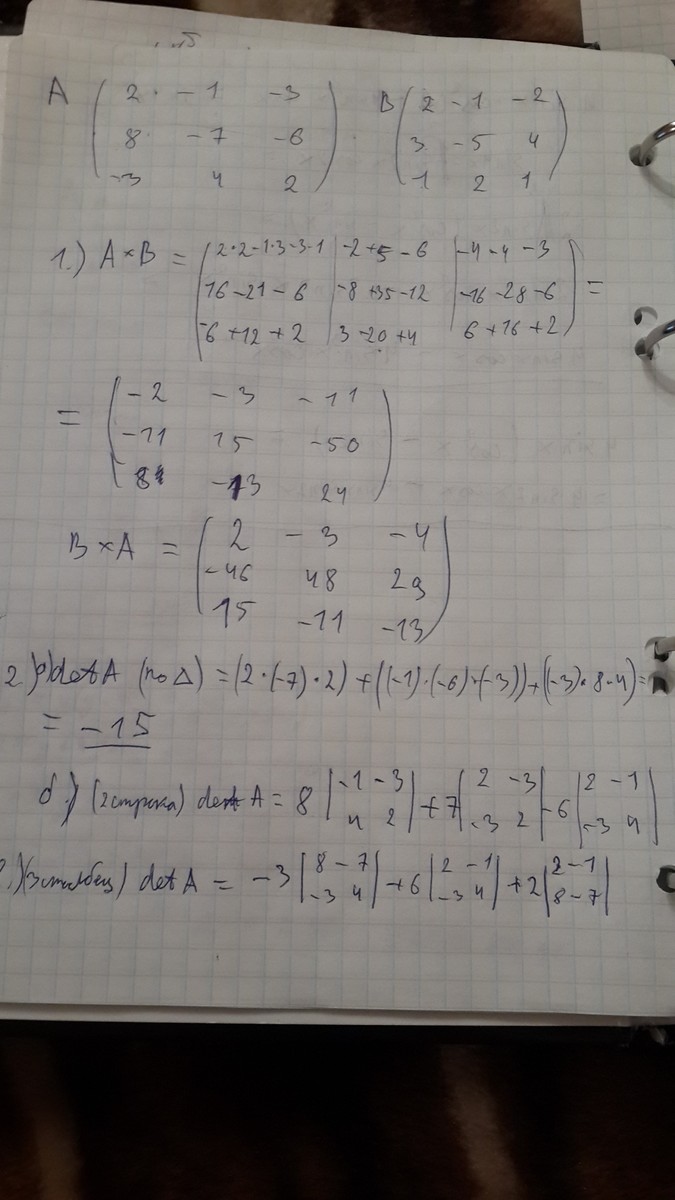 A ( 2 · -1 -3 ) · B ( 2 -1 -2 )
8 · -7 -6 3 -5 4
-3 4 2 1 2 1
1.) A×B = ( 2·2-1·3-3·1 | -2+5-6 | -4-4-3 )
16-21-6 | -8+35-12 | -16-28-6 =
-6+12+2 3-20+4 6+16+2
= ( -2 -3 -11 )
-11 15 -50
8 -13 24
B×A = ( 2 -3 -4 )
-46 48 29
15 -11 -13
2.) detA (по Δ) = (2·(-7)·2) + ((-1)·(-6)·(-3)) + ((-3)·8·4) =
= -15
б.) (2строка) det A = 8 | -1 -3 | +7 | 2 -3 | -6 | 2 -1 |
4 2 -3 2 -3 4
.) (3столбец) det A = -3 | 8 -7 | +6 | 2 -1 | +2 | 2 -1 |
-3 4 -3 4 8 -7